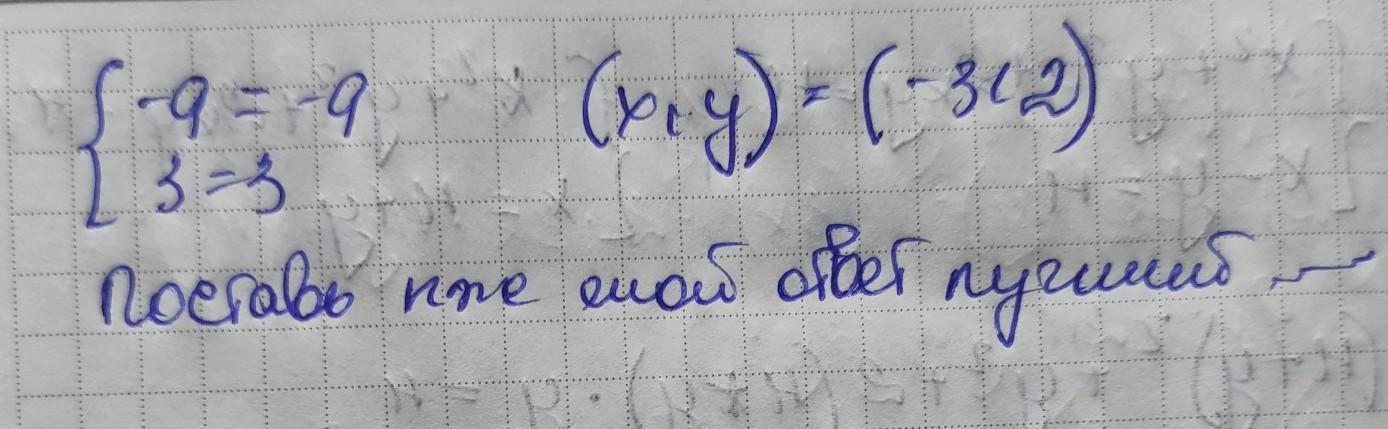 { -9 = -9 (x, y) = (-3; 2)
3 = 3
Поставь пже мой ответ лучший